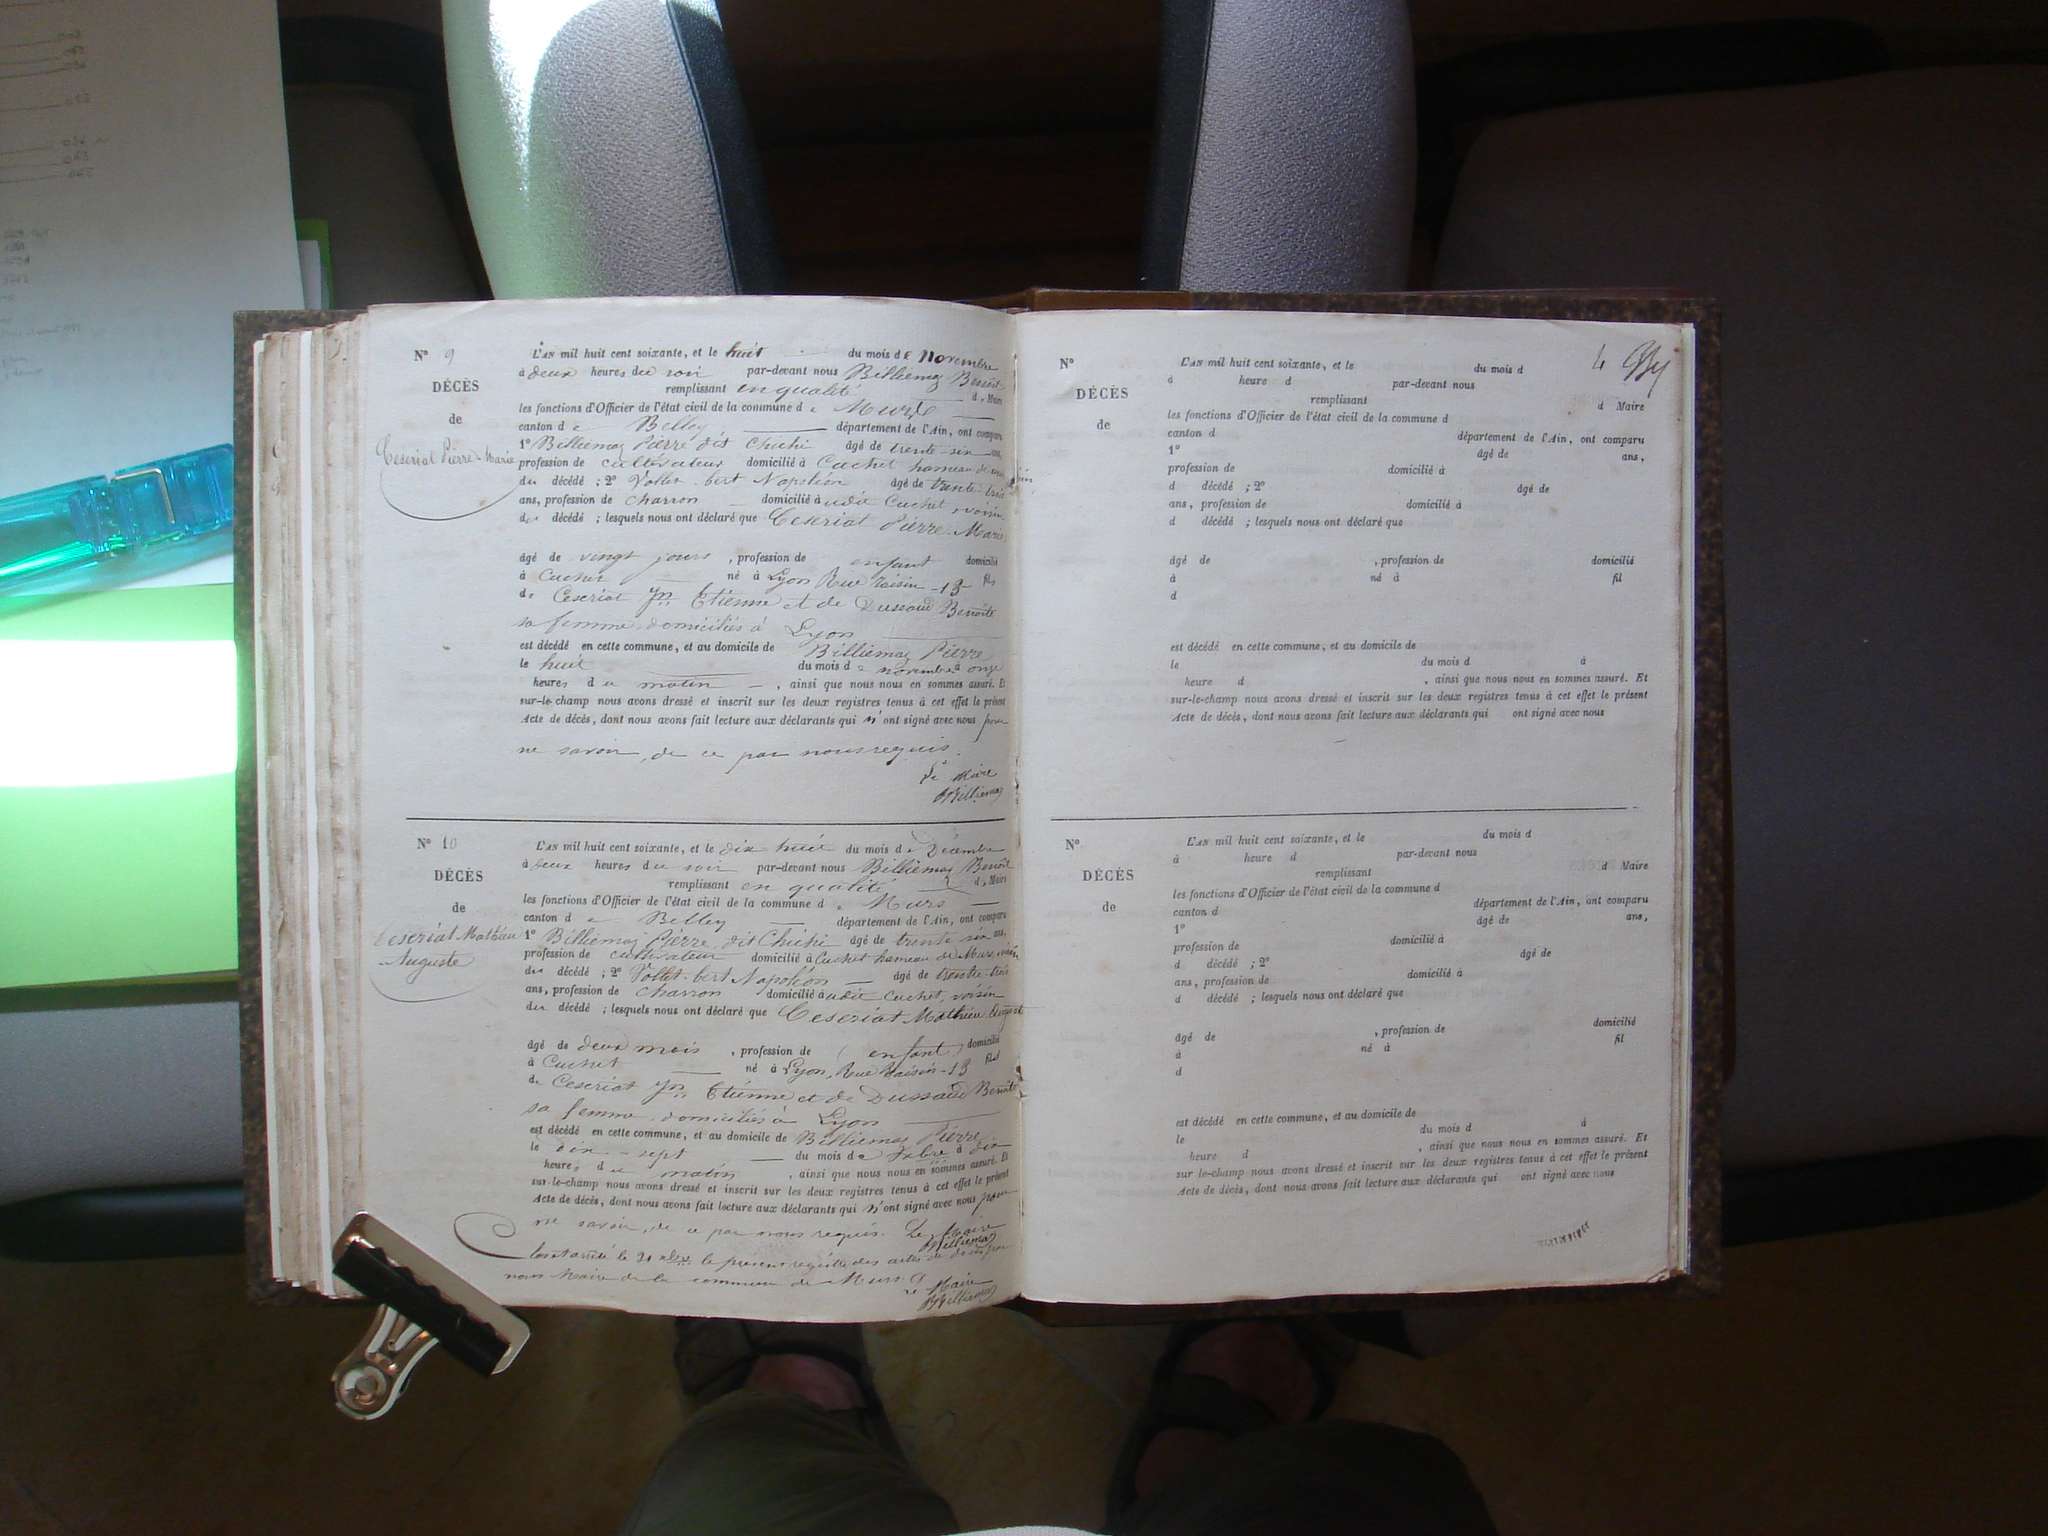 N° 9
DÉCÈS
de
Ceseriat Pierre-Marie
L'AN mil huit cent soixante, et le huit du mois de Novembre
à deux heures du soir par-devant nous Billiemaz Benoit
remplissant en qualité d e Maire
les fonctions d'Officier de l'état civil de la commune d e Murs
canton d e Belley département de l'Ain, ont comparu
1° Billiemaz Pierre dit Chichi âgé de trente-six ans,
profession de cultivateur domicilié à Cuchet hameau de
du décédé ; 2° Vollet-bert Napoléon âgé de trente trois
ans, profession de charron domicilié à udit Cuchet, voisin
du décédé ; lesquels nous ont déclaré que Ceseriat Pierre-Marie
âgé de vingt jours , profession de enfant domicilié
à Cuchet né à Lyon Rue raisin - 13 fils
de Ceseriat Jn Etienne et de Dussaud Benoîte
sa femme domiciliés à Lyon
est décédé en cette commune, et au domicile de Billiemaz Pierre
le huit du mois de novembre à onze
heures du matin , ainsi que nous nous en sommes assuré. Et
sur-le-champ nous avons dressé et inscrit sur les deux registres tenus à cet effet le présent
Acte de décès, dont nous avons fait lecture aux déclarants qui n'ont signé avec nous pour
ne savoir, de ce par nous requis.
Le Maire
Billiemaz
N° 10
DÉCÈS
de
Ceseriat Mathieu
Auguste
L'AN mil huit cent soixante, et le dix huit du mois de Décembre
à deux heures du soir par-devant nous Billiemaz Benoît
remplissant en qualité d e Maire
les fonctions d'Officier de l'état civil de la commune d e Murs
canton d e Belley département de l'Ain, ont comparu
1° Billiemaz Pierre dit Chichi âgé de trente six ans,
profession de cultivateur domicilié à Cuchet hameau de Murs, voisin
du décédé ; 2° Vollet-bert Napoléon âgé de trente-trois
ans, profession de charron domicilié à udit Cuchet, voisin
du décédé ; lesquels nous ont déclaré que Ceseriat Mathieu August
âgé de deux mois , profession de (enfant) domicilié
à Cuchet né à Lyon, Rue Raisin - 13 fils
de Ceseriat Jn Etienne et de Dussaud Benoîte
sa femme domiciliés à Lyon
est décédé en cette commune, et au domicile de Billiemaz Pierre
le dix-sept du mois de Xbre à dix
heures du matin , ainsi que nous nous en sommes assuré. Et
sur-le-champ nous avons dressé et inscrit sur les deux registres tenus à cet effet le présent
Acte de décès, dont nous avons fait lecture aux déclarants qui n'ont signé avec nous pour
ne savoir, de ce par nous requis. Le Maire
Billiemaz
Clos et arrêté le 31 Xbre le présent registre des actes de décès par
nous Maire de la commune de Murs Le Maire
Billiemaz
4
N°
DÉCÈS
de
L'AN mil huit cent soixante, et le du mois d
à heure d par-devant nous
remplissant d Maire
les fonctions d'Officier de l'état civil de la commune d
canton d département de l'Ain, ont comparu
1° âgé de ans,
profession de domicilié à
d décédé ; 2° âgé de
ans, profession de domicilié à
d décédé ; lesquels nous ont déclaré que
âgé de , profession de domicilié
à né à fil
d
est décédé en cette commune, et au domicile de
le du mois d à
heure d , ainsi que nous nous en sommes assuré. Et
sur-le-champ nous avons dressé et inscrit sur les deux registres tenus à cet effet le présent
Acte de décès, dont nous avons fait lecture aux déclarants qui ont signé avec nous
N°
DÉCÈS
de
L'AN mil huit cent soixante, et le du mois d
à heure d par-devant nous
remplissant d Maire
les fonctions d'Officier de l'état civil de la commune d
canton d département de l'Ain, ont comparu
1° âgé de ans,
profession de domicilié à
d décédé ; 2° âgé de
ans, profession de domicilié à
d décédé ; lesquels nous ont déclaré que
âgé de , profession de domicilié
à né à fil
d
est décédé en cette commune, et au domicile de
le du mois d à
heure d , ainsi que nous nous en sommes assuré. Et
sur-le-champ nous avons dressé et inscrit sur les deux registres tenus à cet effet le présent
Acte de décès, dont nous avons fait lecture aux déclarants qui ont signé avec nous